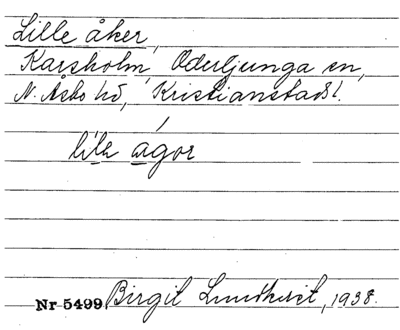 Lille åker,
Karsholm, Oderljunga sn,
N. Åsbo hd, Kristianstads l.
lilə ågor
Nr 5499 Birgit Lundkvist, 1938.